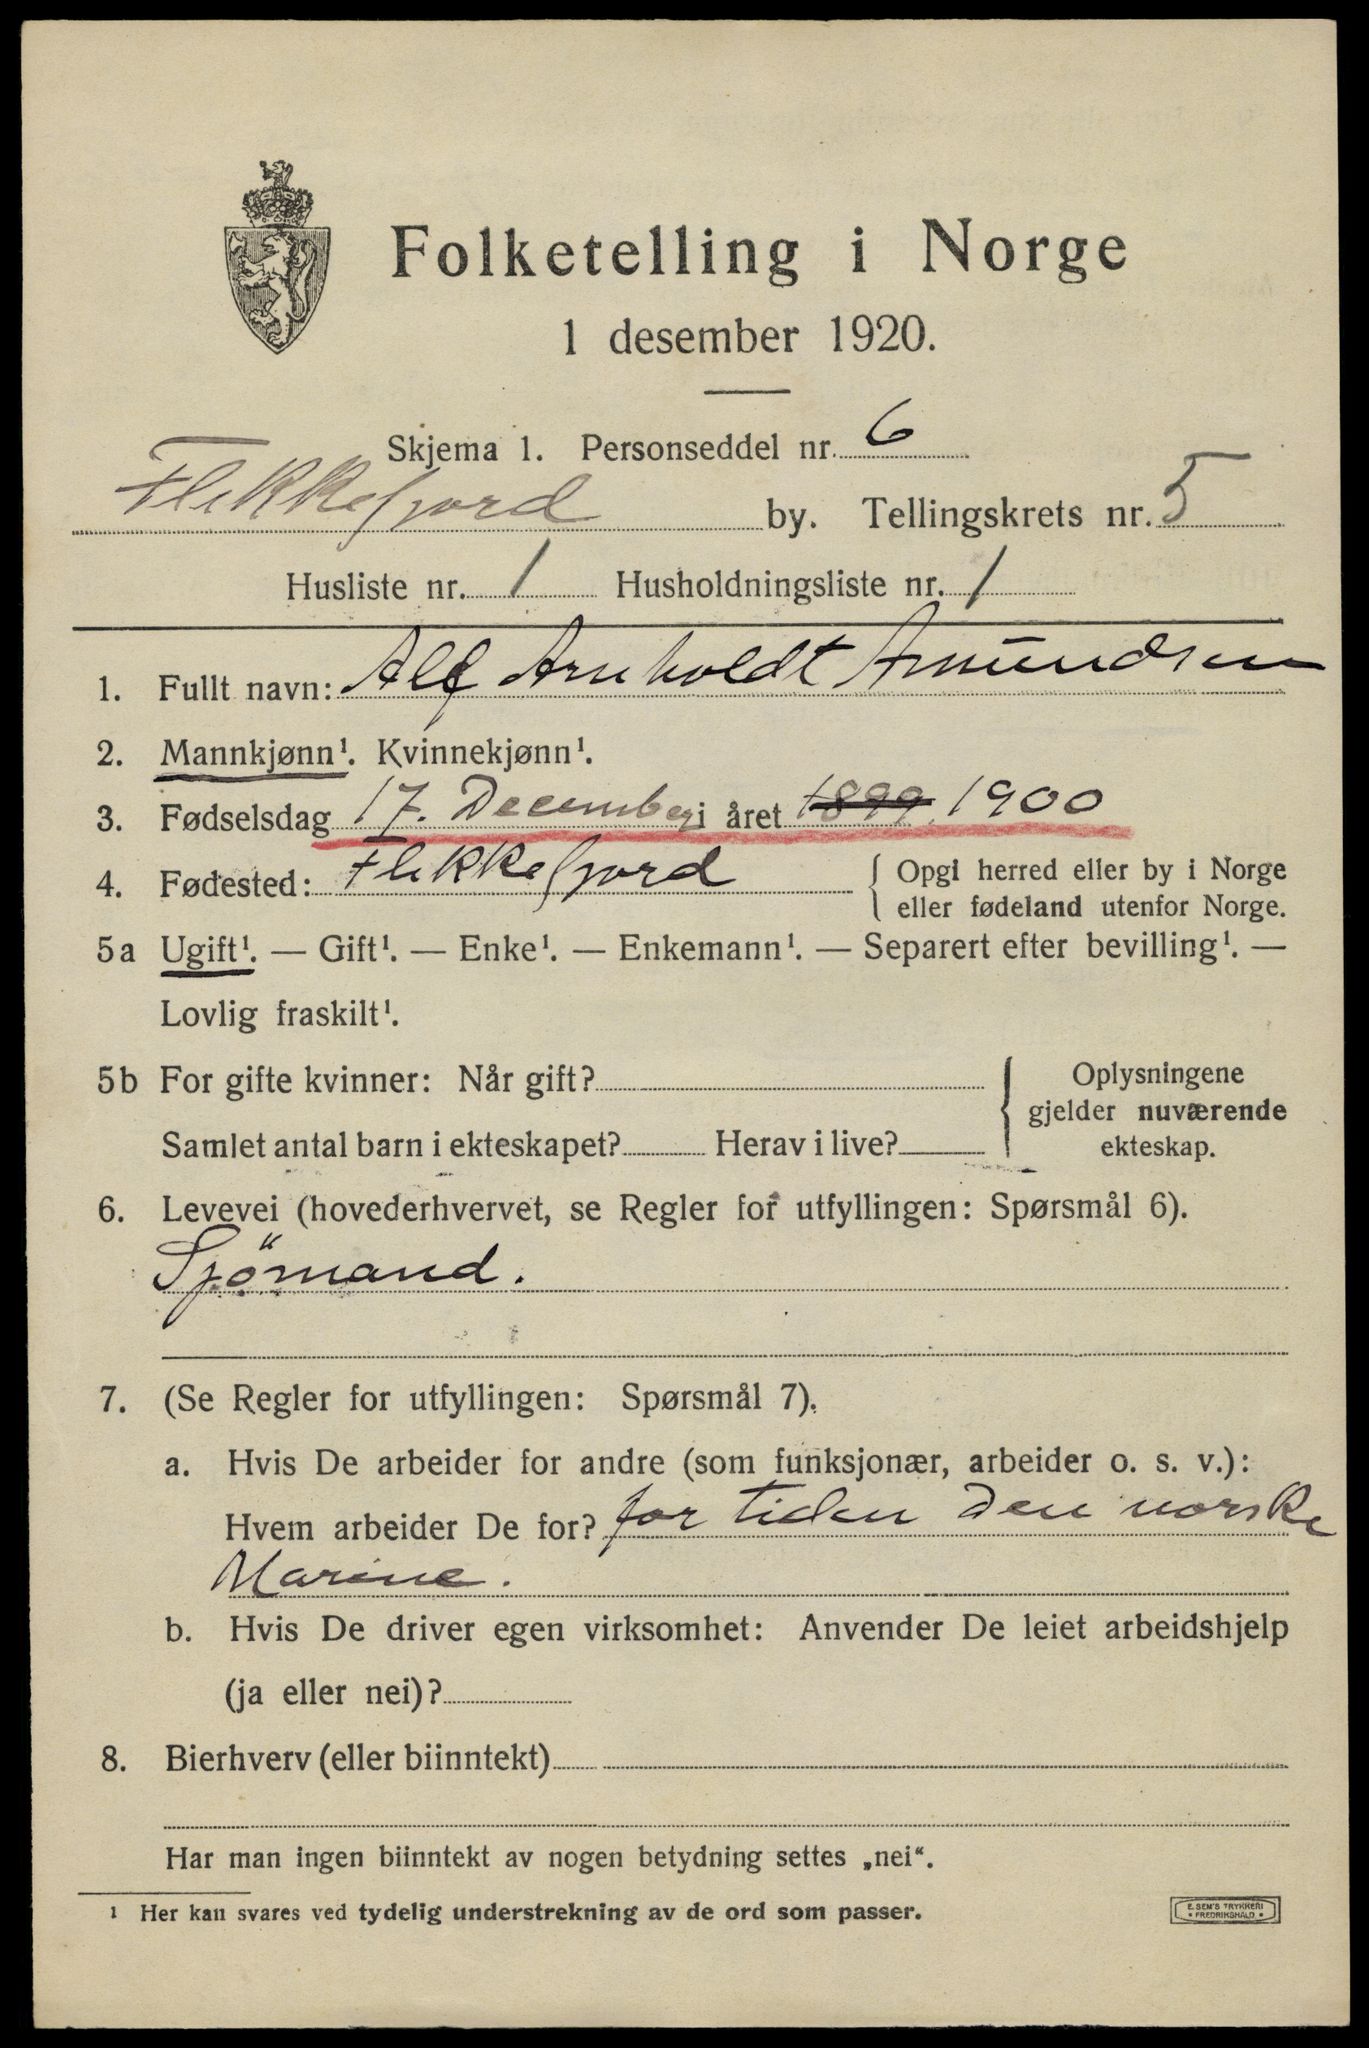 Folketelling i Norge
1 desember 1920.
Skjema 1. Personseddel nr. 6
Flekkefjord by. Tellingskrets nr. 5
Husliste nr. 1 Husholdningsliste nr. 1
1. Fullt navn: Alf Arnholdt Amundsen
2. Mannkjønn¹. Kvinnekjønn¹.
3. Fødselsdag 17. December i året 1899. 1900
4. Fødested: Flekkefjord { Opgi herred eller by i Norge
eller fødeland utenfor Norge.
5a Ugift¹. — Gift¹. — Enke¹. — Enkemann¹. — Separert efter bevilling¹. —
Lovlig fraskilt¹.
5b For gifte kvinner: Når gift? Oplysningene
gjelder nuværende
Samlet antal barn i ekteskapet? Herav i live? ekteskap.
6. Levevei (hovederhvervet, se Regler for utfyllingen: Spørsmål 6).
Sjömand.
7. (Se Regler for utfyllingen: Spørsmål 7).
a. Hvis De arbeider for andre (som funksjonær, arbeider o. s. v.):
Hvem arbeider De for? for tiden den norske
Marine.
b. Hvis De driver egen virksomhet: Anvender De leiet arbeidshjelp
(ja eller nei)?
8. Bierhverv (eller biinntekt)
Har man ingen biinntekt av nogen betydning settes „nei“.
¹ Her kan svares ved tydelig understrekning av de ord som passer.
E. SEM'S TRYKKERI
• FREDRIKSHALD •